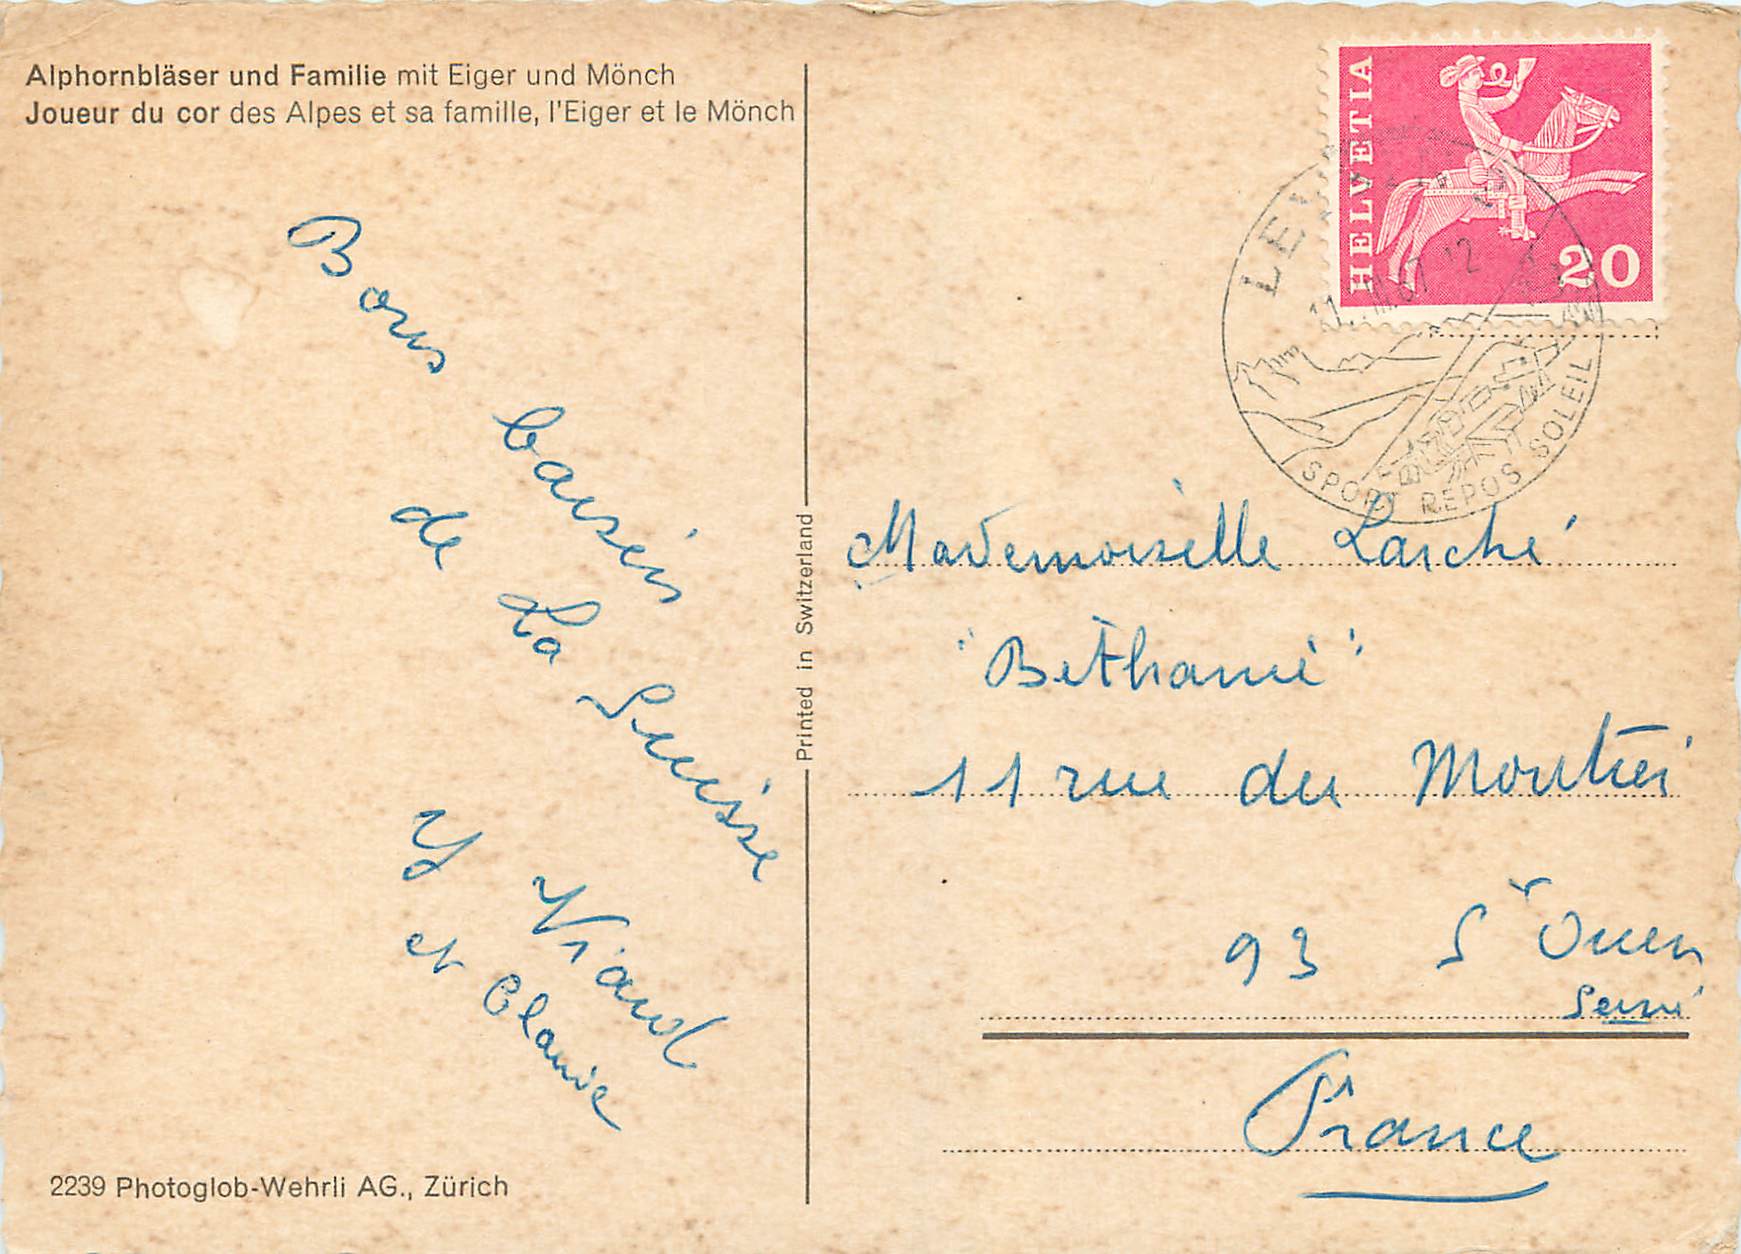 Alphornbläser und Familie mit Eiger und Mönch
Joueur du cor des Alpes et sa famille, l'Eiger et le Mönch
Bons baisers
de La Suisse
Y Viaud
et Clanie
2239 Photoglob-Wehrli AG., Zürich
Printed in Switzerland
HELVETIA
20
SPORT REPOS SOLEIL
Mademoiselle Larché
"Bethanie"
11 rue du Moutier
93 St Ouen
Seine
France